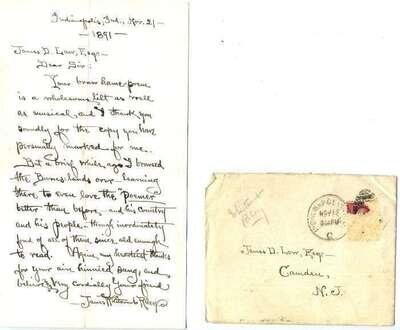 Indianapolis, Ind., Nov. 21 —
— 1891 —
James D. Law, Esq —
Dear Sir:
Your braw hame poem
is a wholesome lilt as well
as musical, and I thank you
soundly for the copy you have
personally marked for me.
But a brief while ago I roamed
the Burns-lands over — learning
there to even love the "poemer"
better than before, and his country
and his people — though inordinately
fond of all of them since old enough
to read. Again, my hearted thanks
for your ain hinnied sang, and
believe me Very cordially Your friend
— James Whitcomb Riley —
INDIANAPOLIS
NOV
James D. Law, Esq —
Camden,
N. J.